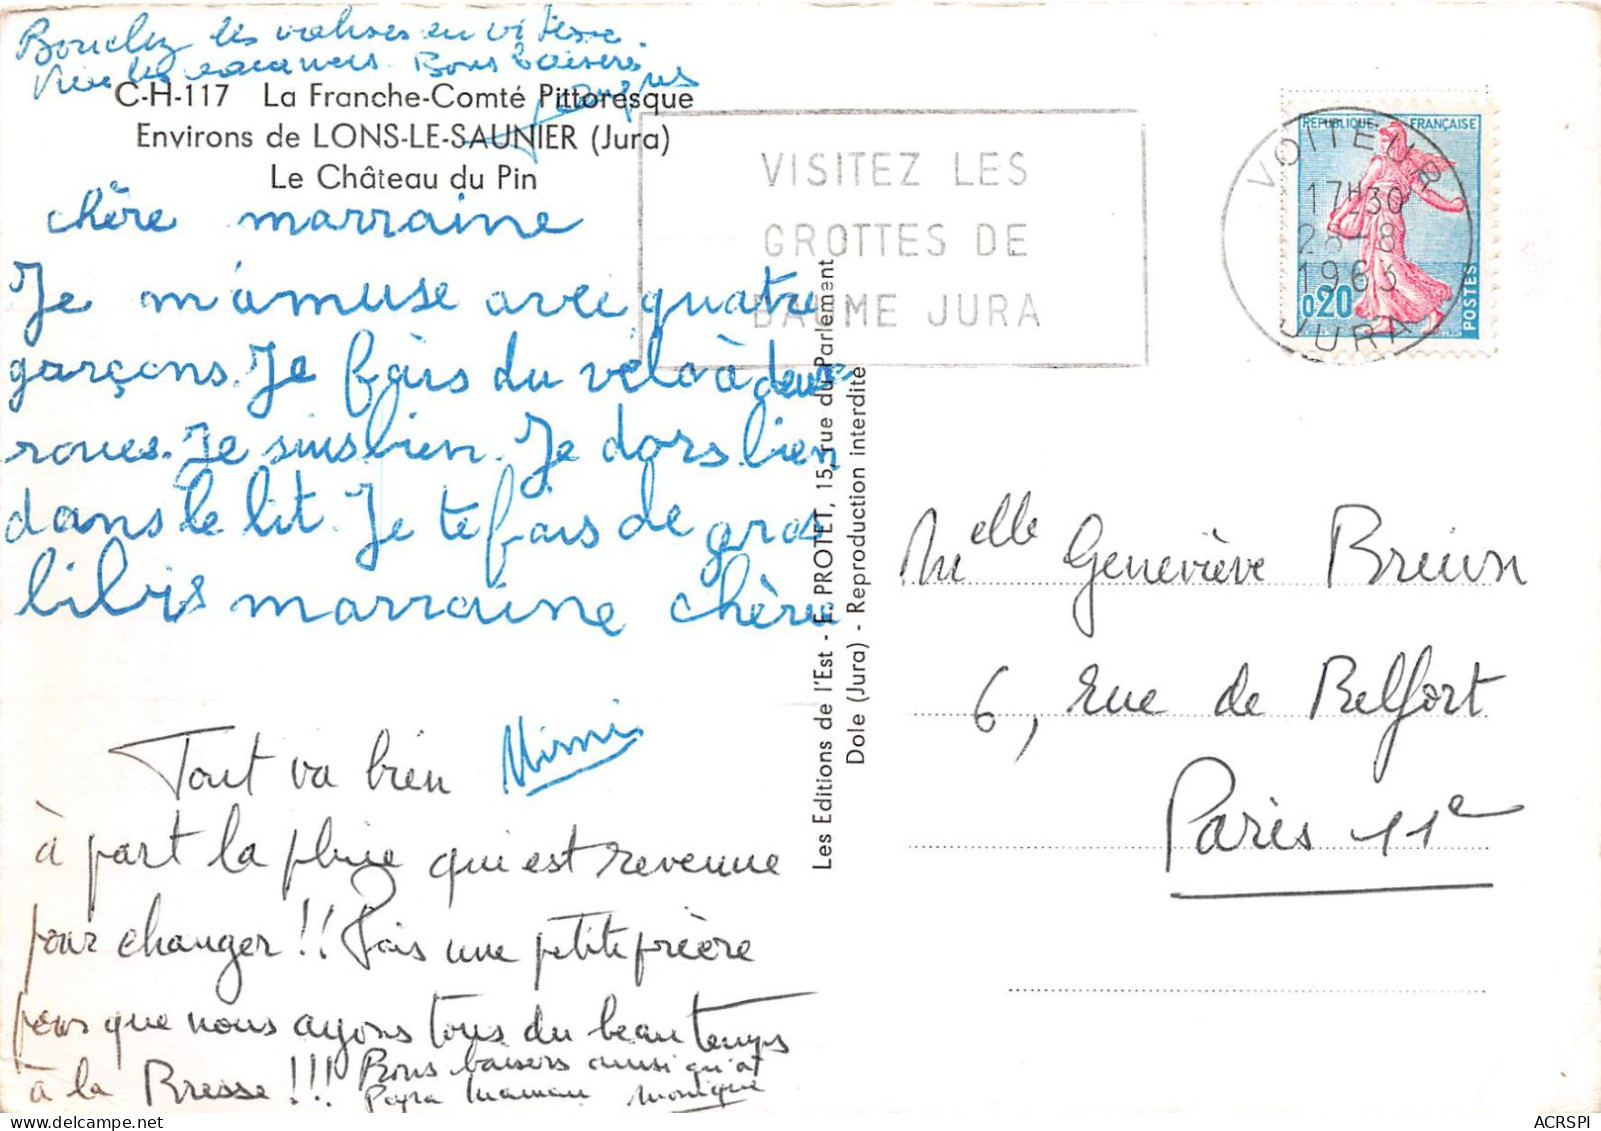 Bouclez les valises en vitesse.
Vive les vacances. Bons baisers
Jacques
C-H-117 La Franche-Comté Pittoresque
Environs de LONS-LE-SAUNIER (Jura)
Le Château du Pin
chère marraine
Je m'amuse avec quatre
garçons. Je fais du vélo à deux
roues. Je suis bien. Je dors bien
dans le lit. Je te fais de gros
bibis marraine chérie
Mimi
Tout va bien
à part la pluie qui est revenue
pour changer!! Fais une petite prière
pour que nous ayons tous du beau temps
à la Bresse!!! Bons baisers ainsi qu'à
Papa Maman Monique
Les Editions de l'Est - E. PROTET, 15, rue du Parlement
Dole (Jura) - Reproduction interdite
VISITEZ LES
GROTTES DE
BAUME JURA
VOITEUR
17H30
28-8
1963
JURA
REPUBLIQUE FRANÇAISE
0,20
POSTES
Melle Geneviève
6, rue de Belfort
Paris 11e
ACRSPI